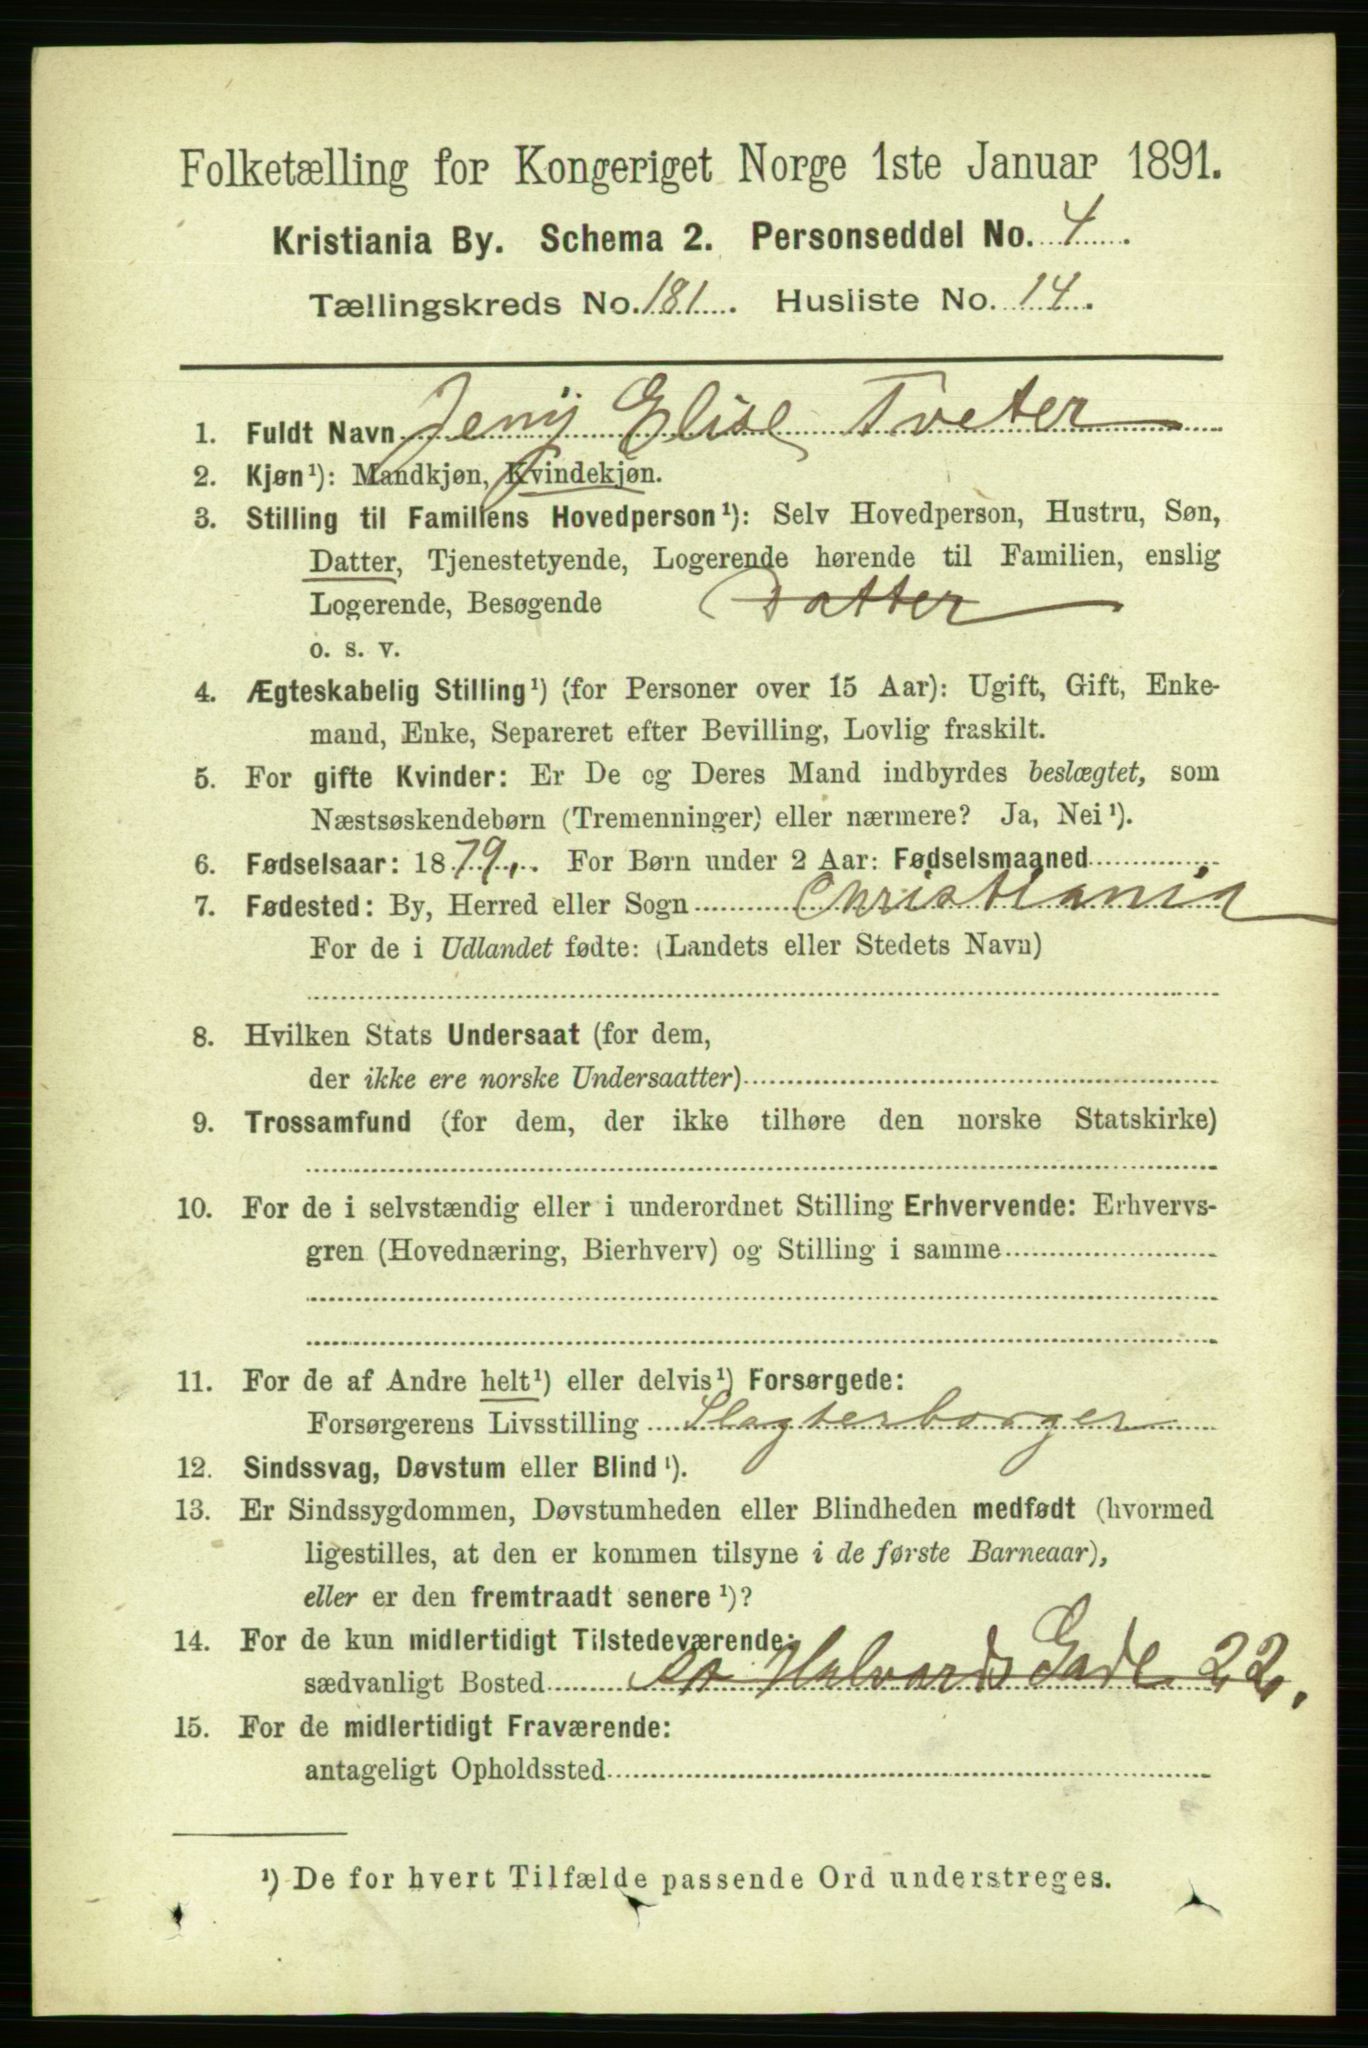 Folketælling for Kongeriget Norge 1ste Januar 1891.
Kristiania By. Schema 2. Personseddel No. 4.
Tællingskreds No. 181. Husliste No. 14.
1. Fuldt Navn Jeny Elise Tveter
2. Kjøn¹): Mandkjøn, Kvindekjøn.
3. Stilling til Familiens Hovedperson¹): Selv Hovedperson, Hustru, Søn,
Datter, Tjenestetyende, Logerende hørende til Familien, enslig
Logerende, Besøgende Datter
o. s. v.
4. Ægteskabelig Stilling¹) (for Personer over 15 Aar): Ugift, Gift, Enke-
mand, Enke, Separeret efter Bevilling, Lovlig fraskilt.
5. For gifte Kvinder: Er De og Deres Mand indbyrdes beslægtet, som
Næstsøskendebørn (Tremenninger) eller nærmere? Ja, Nei¹).
6. Fødselsaar: 1879. For Børn under 2 Aar: Fødselsmaaned
7. Fødested: By, Herred eller Sogn Christiania
For de i Udlandet fødte: (Landets eller Stedets Navn)
8. Hvilken Stats Undersaat (for dem,
der ikke ere norske Undersaatter)
9. Trossamfund (for dem, der ikke tilhøre den norske Statskirke)
10. For de i selvstændig eller i underordnet Stilling Erhvervende: Erhvervs-
gren (Hovednæring, Bierhverv) og Stilling i samme
11. For de af Andre helt¹) eller delvis¹) Forsørgede:
Forsørgerens Livsstilling Slagterborger
12. Sindssvag, Døvstum eller Blind¹).
13. Er Sindssygdommen, Døvstumheden eller Blindheden medfødt (hvormed
ligestilles, at den er kommen tilsyne i de første Barneaar),
eller er den fremtraadt senere¹)?
14. For de kun midlertidigt Tilstedeværende:
sædvanligt Bosted Halvards Gade 22.
15. For de midlertidigt Fraværende:
antageligt Opholdssted
¹) De for hvert Tilfælde passende Ord understreges.